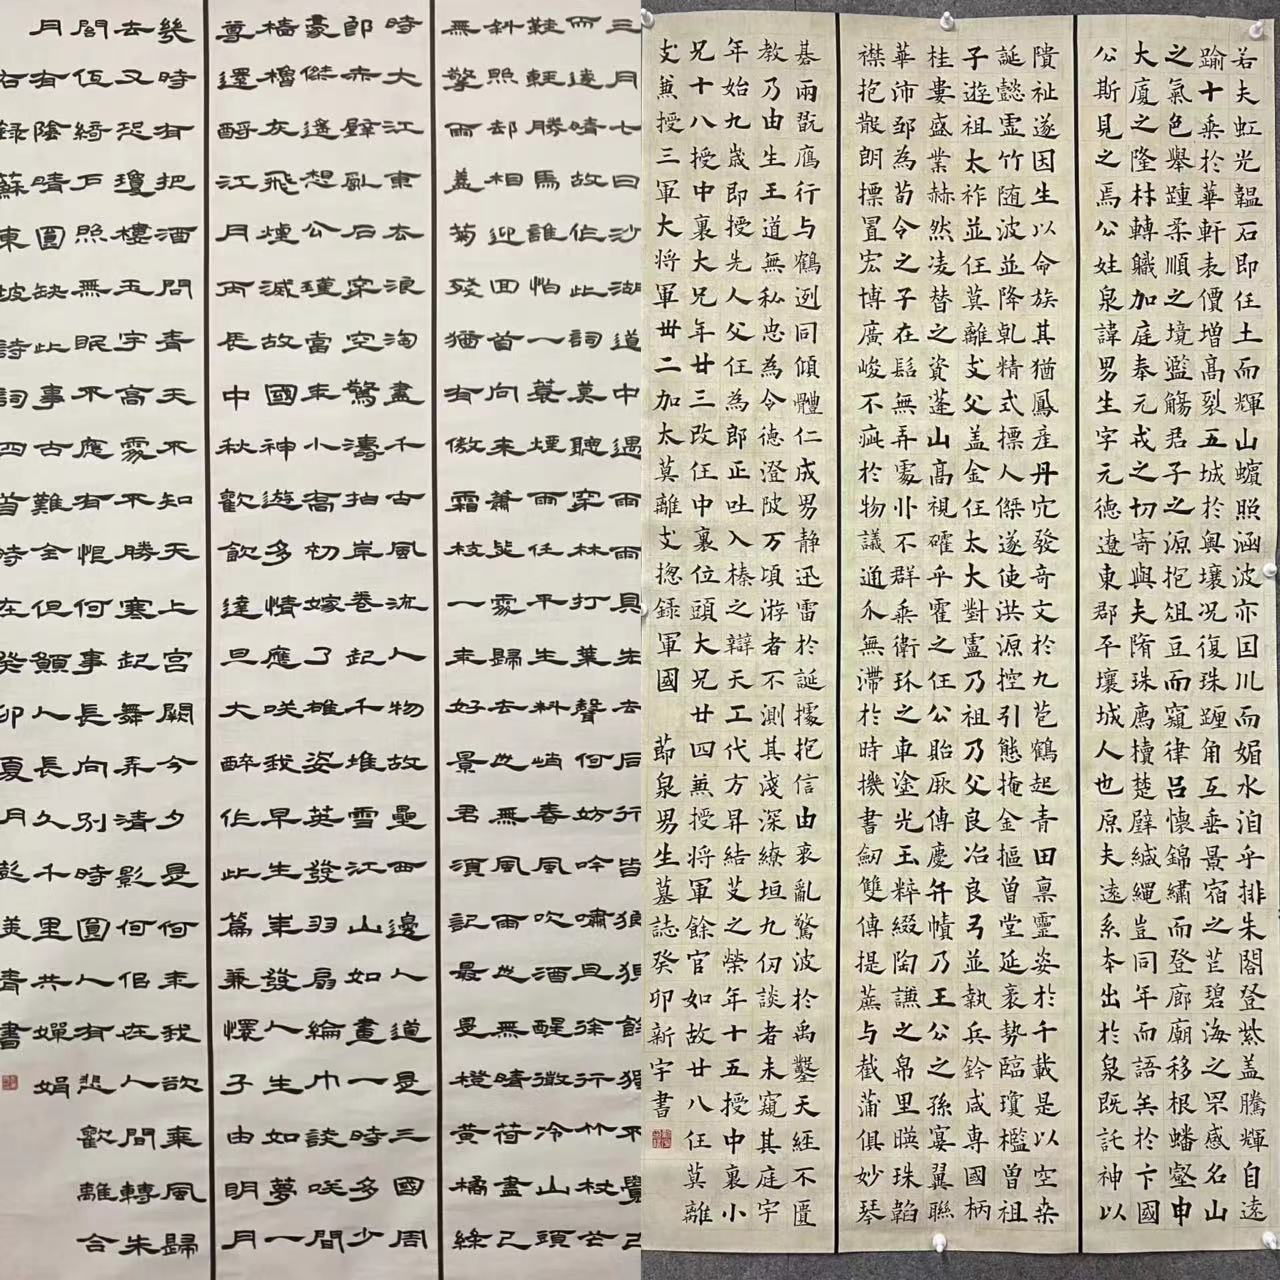 三月七日沙湖道中遇雨雨具先去同行皆狼狽餘獨不覺已
而遂晴故作此詞莫聽穿林打葉聲何妨吟嘯且徐行竹杖芒
鞋輕勝馬誰怕一蓑煙雨任平生料峭春風吹酒醒微冷山頭
斜照却相迎回首向来蕭瑟處歸去也無風雨也無晴荷盡已
無擎雨蓋菊殘猶有傲霜枝一年好景君須記最是橙黃橘綠
時大江東去浪淘盡千古風流人物故壘西邊人道是三國周
郎赤壁亂石穿空驚濤拍岸卷起千堆雪江山如畫一時多少
豪傑遙想公瑾當年小喬初嫁了雄姿英發羽扇綸巾談咲間
檣櫓灰飛煙滅故國神遊多情應咲我早生華發人生如夢一
尊還酹江月丙辰中秋歡飲達旦大醉作此篇兼懷子由明月
幾時有把酒問青天不知天上宮闕今夕是何年我欲乘風歸
去又恐瓊樓玉宇高處不勝寒起舞弄清影何似在人間轉朱
閣低綺戶照無眠不應有恨何事長向別時圓人有悲歡離合
月有陰晴圓缺此事古難全但願人長久千里共嬋娟
右錄蘇東坡詩詞四首時在癸卯夏月彭美青書
若夫虹光韞石即任土而輝山蠙照涵波亦因川而媚水洎乎排朱閣登紫蓋騰輝自遠
踰十乘於華軒表價增高裂五城於奧壤况復珠躔角互垂景宿之芒碧海之罘感名山
之氣色舉踵柔順之境濫觴君子之源抱俎豆而窺律呂懷錦繡而登廊廟移根蟠壑申
大廈之隆材轉職加庭奉元戎之切寄與夫隋珠薦櫝楚璧緘繩豈同年而語矣於卞國
公斯見之焉公姓泉諱男生字元德遼東郡平壤城人也原夫遠系本出於泉既託神以
隤祉遂因生以命族其猶鳳產丹穴發奇文於九苞鶴起青田稟靈姿於千載是以空桑
誕懿靈竹随波並降乹精式摽人傑遂使洪源控引態掩金樞曾堂延袤勢臨瓊檻曾祖
子遊祖太祚並任莫離支父盖金任太大對盧乃祖乃父良冶良弓並執兵鈐咸専國柄
桂婁盛業赫然凌替之資蓬山高視確乎霍之任公貽厥傳慶弁幘乃王公之孫宴翼聯
華沛邹為荀令之子在髫無弄處丱不群乘衛玠之車塗光玉粹綴陶謙之帛里暎珠韜
襟抱散朗摽置宏博廣峻不疵於物議通介無滯於時機書劒雙傳提蔗与截蒲俱妙琴
碁兩翫鴈行与鶴迾同傾體仁成男静迅雷於誕據抱信由衷亂驚波於禹鑿天經不匱
教乃由生王道無私忠為令德澄陂万頃游者不測其淺深繚垣九仞談者未窺其庭宇
年始九歲即授先人父任為郎正吐入榛之辯天工代方昇結艾之榮年十五授中裏小
兄十八授中裏大兄年廿三改任中裏位頭大兄廿四兼授將軍餘官如故廿八任莫離
支兼授三軍大将軍卅二加太莫離支揔録軍國 節泉男生墓誌癸卯新宇書